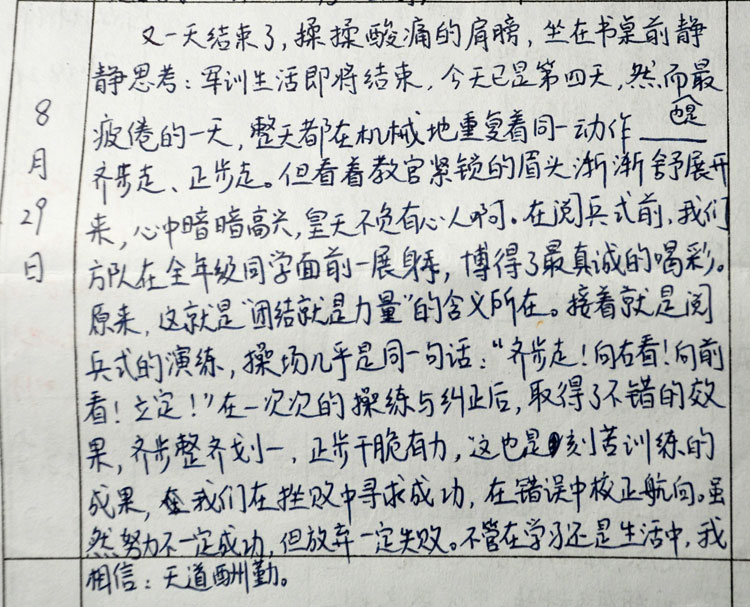 又一天结束了，揉揉酸痛的肩膀，坐在书桌前静
静思考：军训生活即将结束，今天已是第四天，然而最
疲倦的一天，整天都在机械地重复着同一动作——
齐步走、正步走。但看着教官紧锁的眉头渐渐舒展开
来，心中暗暗高兴，皇天不负有心人啊。在阅兵式前，我们
方队在全年级同学面前一展身手，博得了最真诚的喝彩。
原来，这就是“团结就是力量”的含义所在。接着就是阅
兵式的演练，操场几乎是同一句话：“齐步走！向右看！向前
看！立定！”在一次次的操练与纠正后，取得了不错的效
果，齐步整齐划一，正步干脆有力，这也是刻苦训练的
成果，我们在挫败中寻求成功，在错误中校正航向。虽
然努力不一定成功，但放弃一定失败。不管在学习还是生活中，我
相信：天道酬勤。
8
月
29
日